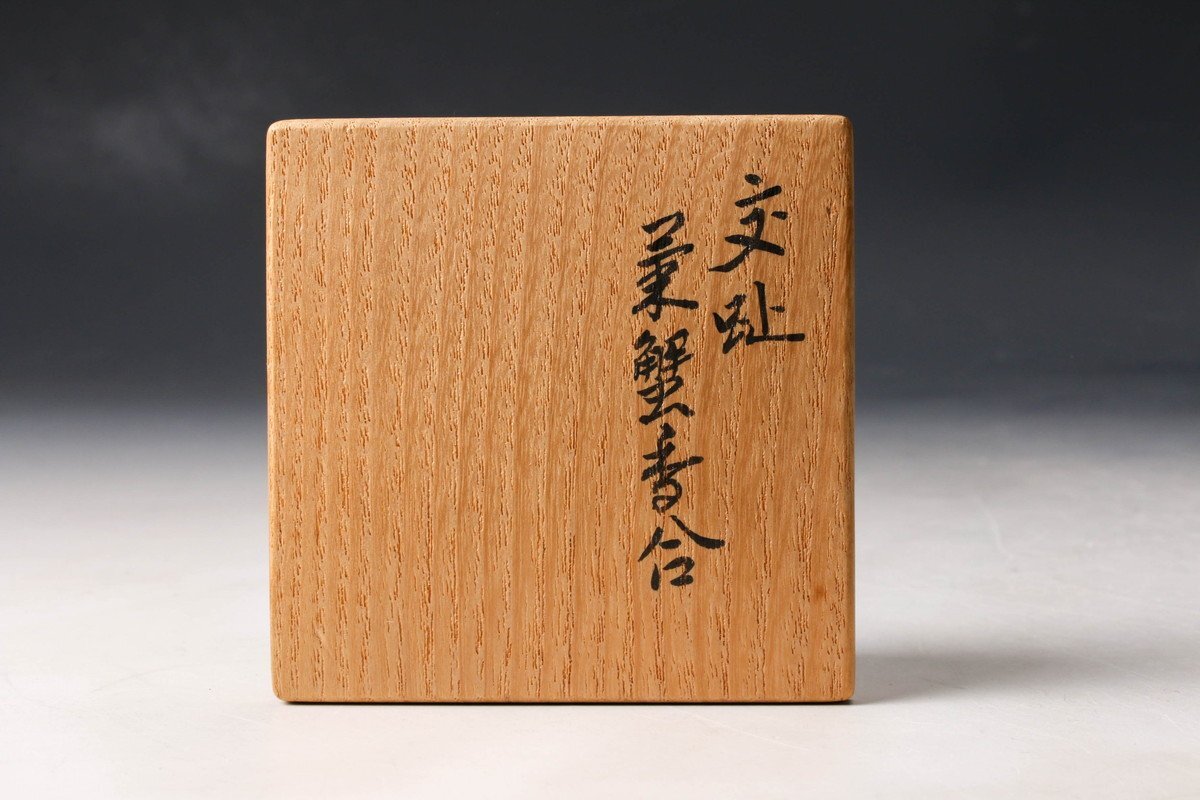 交趾
菓蟹香合